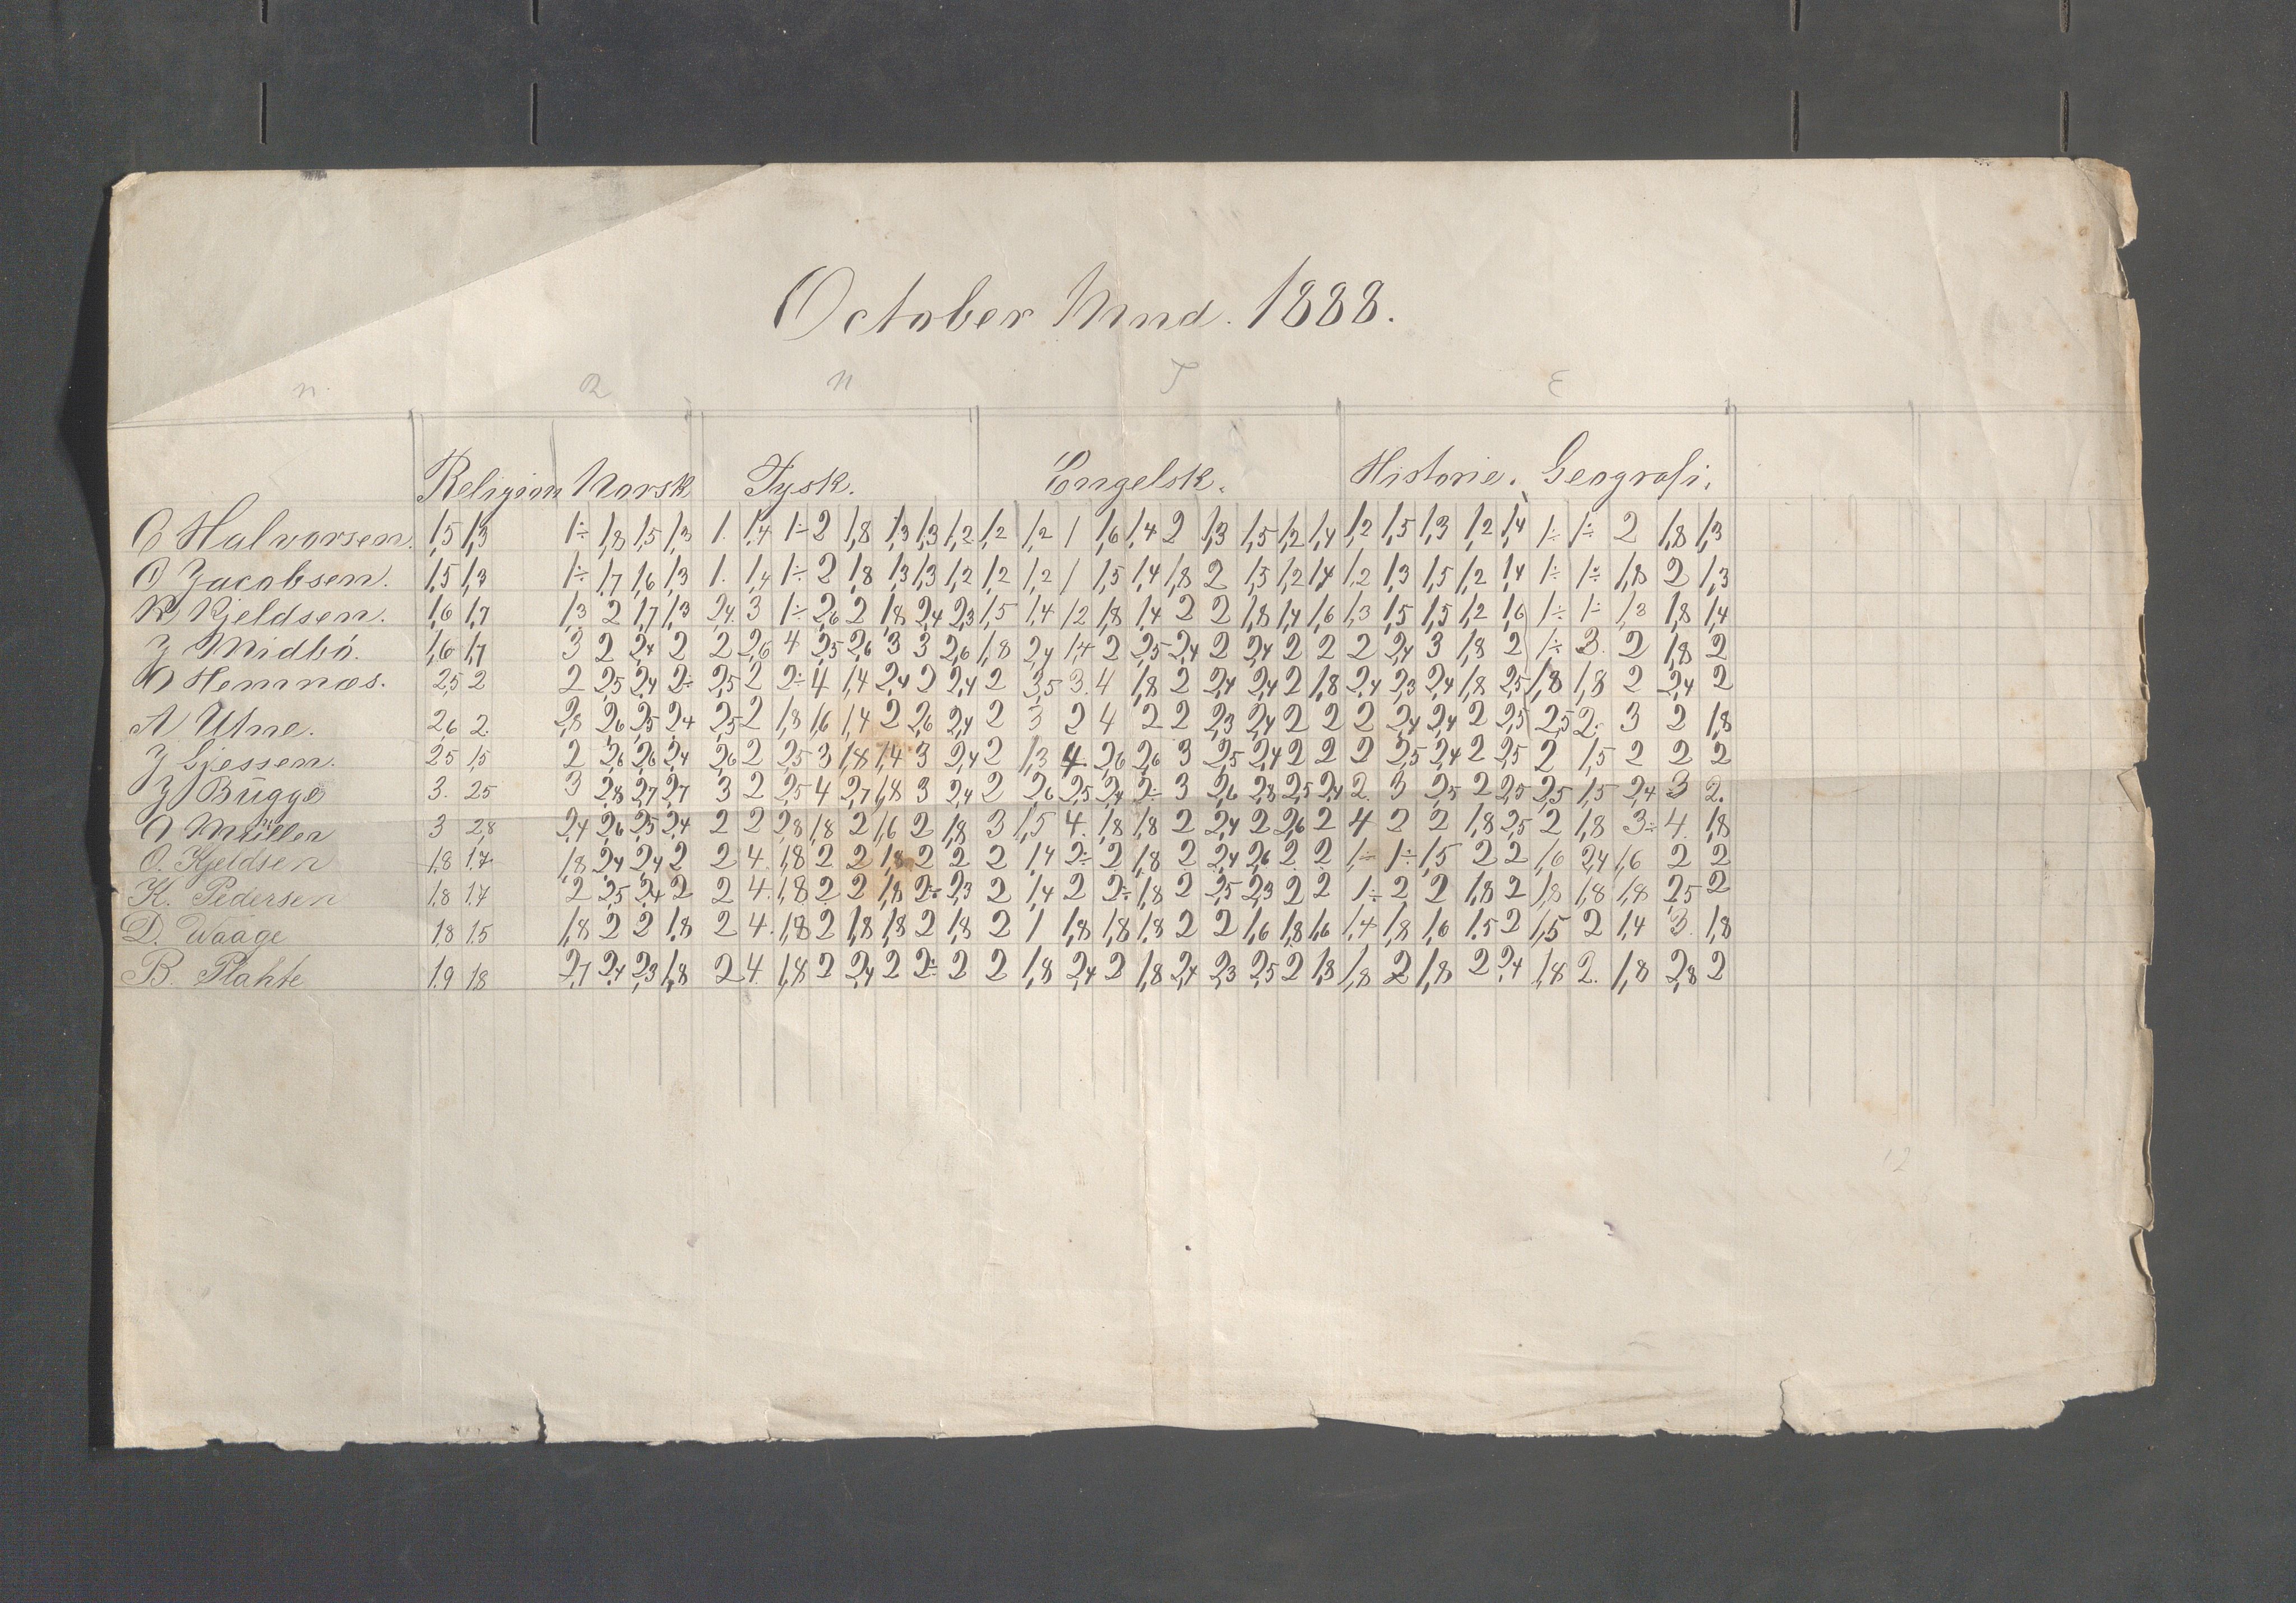 October Mnd. 1888.
n. R N T E
Religion Norsk Tysk. Engelsk. Historie. Geografi.
O Halvorsen. 1,5 1,3 1÷ 1,8 1,5 1,3 1. 1,4 1÷ 2 1,8 1,3 1,3 1,2 1,2 1,2 1 1,6 1,4 2 1,3 1,5 1,2 1,4 1,2 1,5 1,3 1,2 1,4 1÷ 1÷ 2 1,8 1,3
O Jacobsen. 1,5 1,3 1÷ 1,7 1,6 1,3 1. 1,4 1÷ 2 1,8 1,3 1,3 1,2 1,2 1,2 1 1,5 1,4 1,8 2 1,5 1,2 1,4 1,2 1,3 1,5 1,2 1,4 1÷ 1÷ 1,8 2 1,3
R Kjeldsen. 1,6 1,7 1,3 2 1,7 1,3 2,4. 3 1÷ 2,6 2 1,8 2,4 2,3 1,5 1,4 1,2 1,8 1,4 2 2 1,8 1,4 1,6 1,3 1,5 1,5 1,2 1,6 1÷ 1÷ 1,3 1,8 1,4
J Midbö. 1,6 1,7 3 2 2,4 2 2 2,6 4 2,5 2,6 3 3 2,6 1,8 2,4 1,4 2 2,5 2,4 2 2,4 2 2 2 2,4 3 1,8 2 1÷ 3. 2 1,8 2
O Hemnæs. 2,5 2 2 2,5 2,4 2÷ 2,5 2 2÷ 4 1,4 2,4 2 2,4 2 3,5 3. 4 1,8 2 2,4 2,4 2 1,8 2,4 2,3 2,4 1,8 2,5 1,8 1,8 2 2,4 2
A Utne. 2,6 2. 2,8 2,6 2,5 2,4 2,5 2 1,8 1,6 1,4 2 2,6 2,4 2 3 2 4 2 2 2,3 2,4 2 2 2 2,4 2,4 2 2,5 2,5 2. 3 2 1,8
J Gjessen. 25 1,5 2 2,6 2,6 2,4 2,6 2 2,5 3 1,8 1,4 3 2,4 2 1,3 4. 2,6 2,6 3 2,5 2,4 2 2 2 2,5 2,4 2 2,5 2 1,5 2 2 2
J Bugge 3. 25 3 2,8 2,7 2,7 3 2 2,5 4 2,7 1,8 3 2,4 2 2,6 2,5 2,4 2÷ 3 2,6 2,8 2,5 2,4 2. 3 2,5 2 2,5 2,5 1,5 2,4 3 2.
O Müller 3 2,8 2,4 2,6 2,5 2,4 2 2 2,8 1,8 2 1,6 2 1,8 3 1,5 4. 1,8 1,8 2 2,4 2 2,6 2 4 2 2 1,8 2,5 2 1,8 3÷ 4. 1,8
O. Kjeldsen 1,8 1,7 1,8 2,4 2,4 2 2 4. 1,8 2 2 1,8 2 2 2 1,4 2÷ 2 1,8 2 2,4 2,6 2 2 1÷ 1÷ 1,5 2 2 1,6 2,4 1,6 2 2
K. Pedersen 1,8 1,7 2 2,5 2,4 2 2 4. 1,8 2 2 1,8 2÷ 2,3 2 1,4 2 2÷ 1,8 2 2,5 2,3 2 2 1÷ 2 2 1,8 2 1,8 1,8 1,8 2,5 2
D. Waage 1,8 1,5 1,8 2 2 1,8 2 4. 1,8 2 1,8 1,8 2 1,8 2 1 1,8 1,8 1,8 2 2 1,6 1,8 1,6 1,4 1,8 1,6 1,5 2 1,5 2 1,4 3. 1,8
B. Plahte 1,9 1,8 2,7 2,4 2,3 1,8 2 4. 1,8 2 2,4 2 2÷ 2 2 1,8 2,4 2 1,8 2,4 2,3 2,5 2 1,8 1,8 2 1,8 2 2,4 1,8 2. 1,8 2,8 2
12